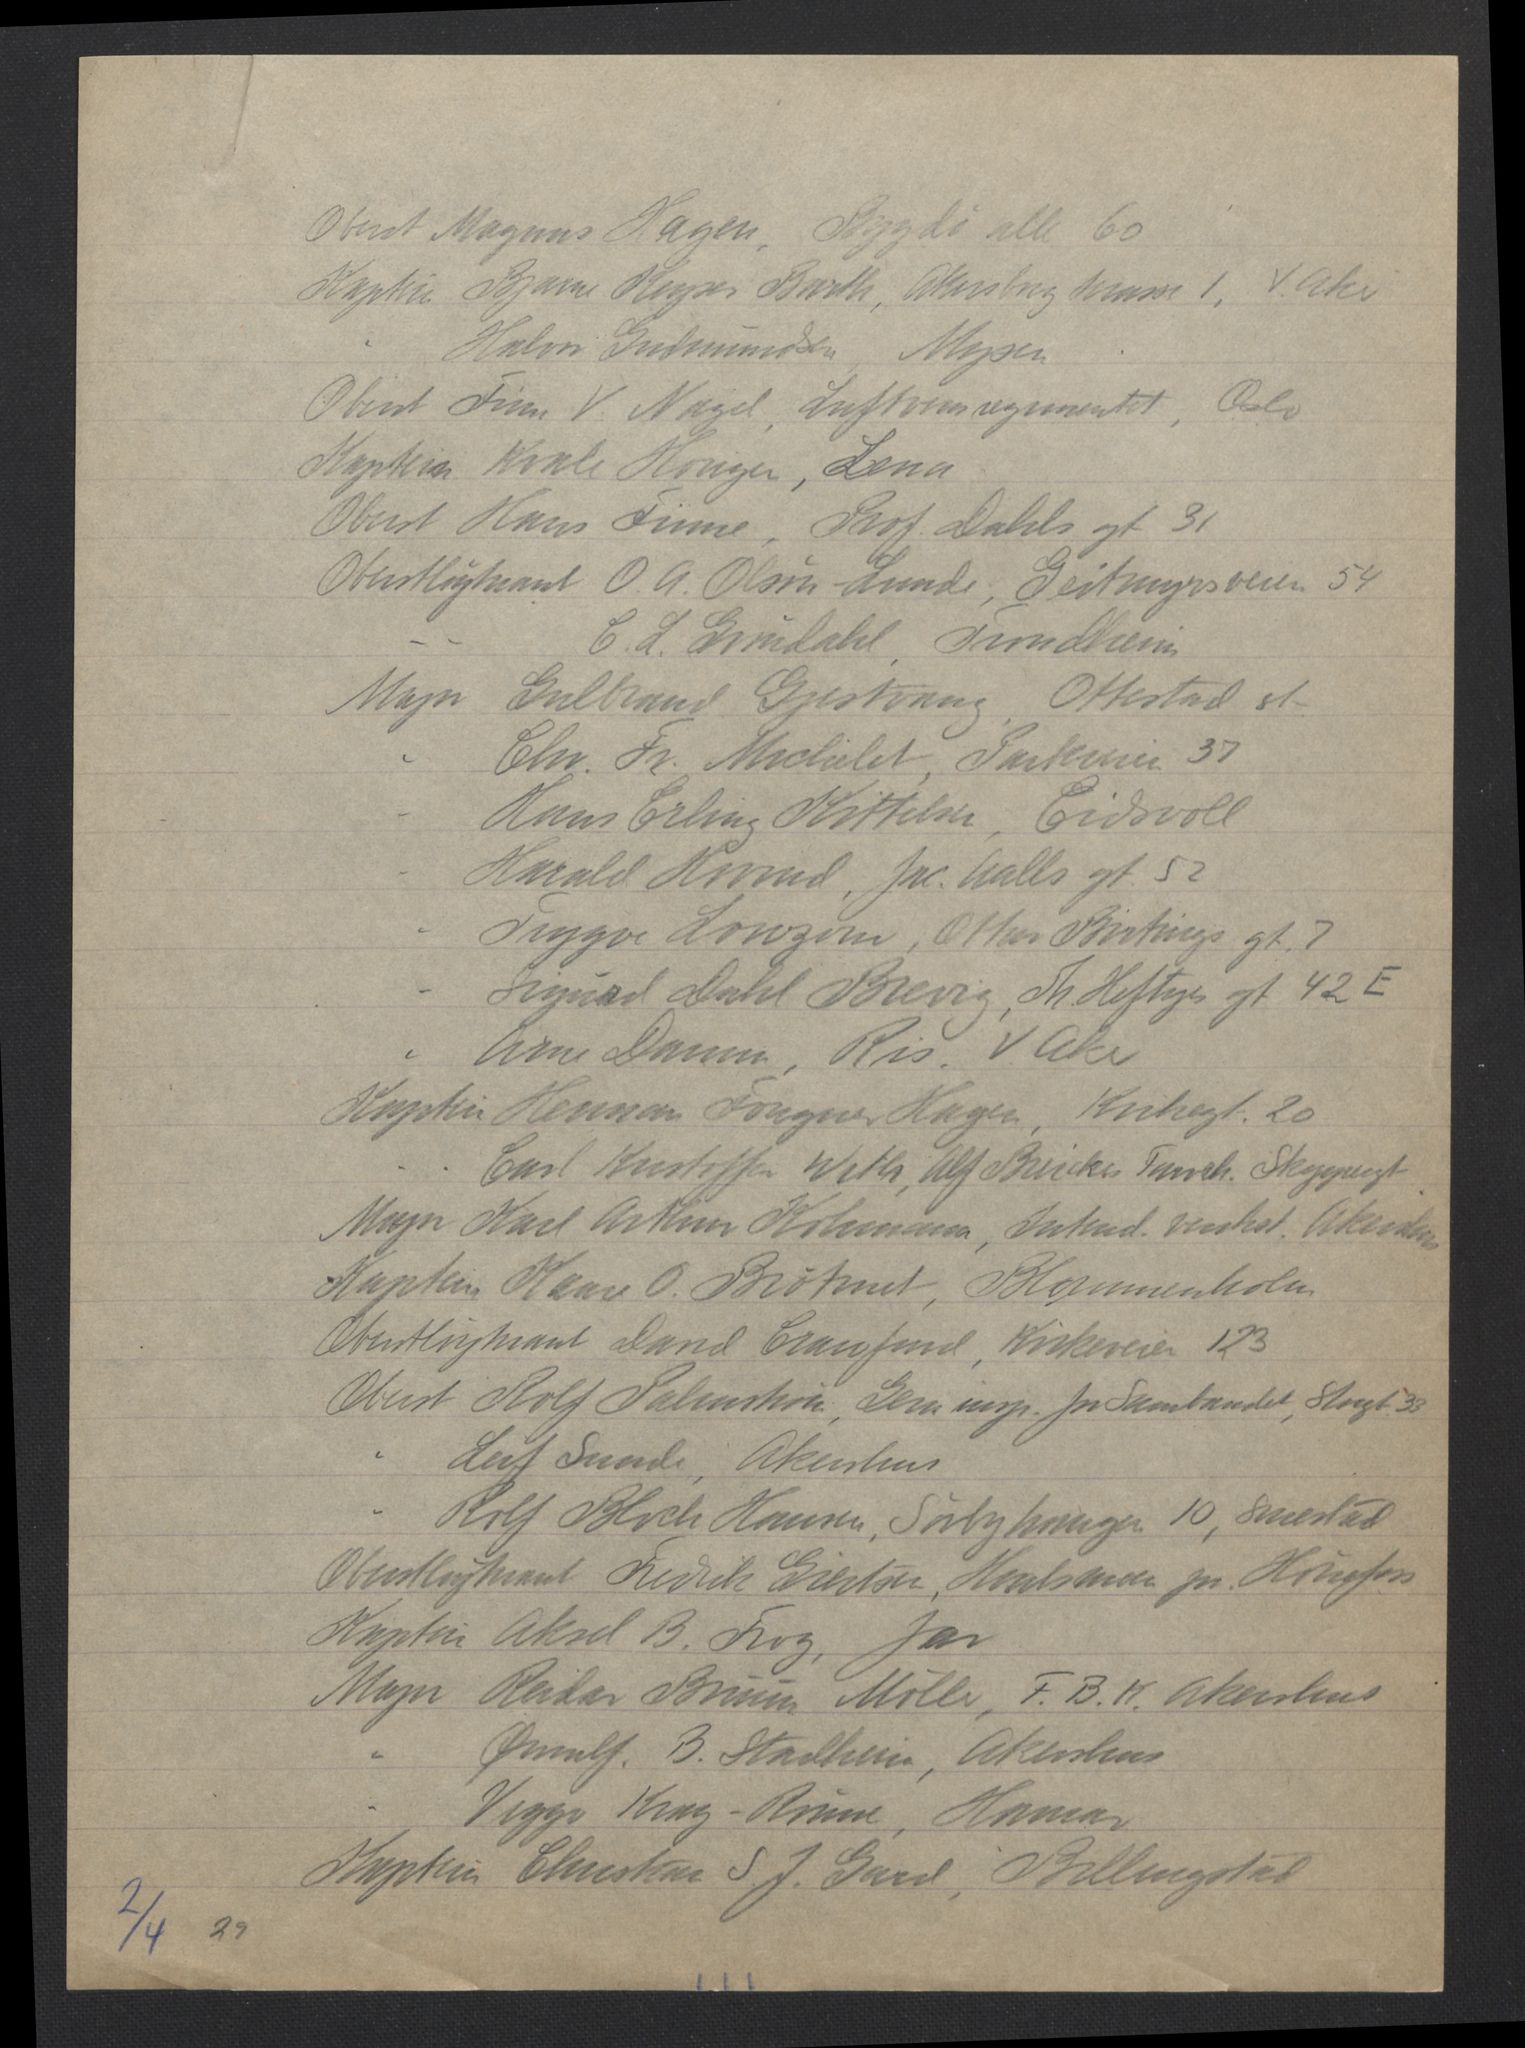 Oberst Magnus Hagen, Bygdö alle 60
Kaptein Bjarne Keyser Barth, Akersborg terasse 1, V. Aker
" Halvor Gudmundsen, Mysen
Oberst Finn V. Nagel, Luftvernregimentet, Oslo
Kaptein Kvale Honger, Lena
Oberst Hans Finne, Prof. Dahls gt 31
Oberstlöytnant O. A. Olsön-Lunde, Geitmyrsveien 54
" C. L. Gröndahl, Trondheim
Major Gulbrand Gjestvang, Ottestad st
" Chr. Fr. Michelet, Parkveien 37
" Hans Erling Kittelsen, Eidsvoll
" Harald, Jac. Aalls gt. 52
" Trygve Lowzow, Othar Birtings gt. 7
" Sigurd Dahl Brevig, Th. Heftyes gt 42 E
" Arne Damm, Ris. V. Aker
Kaptein Herman Fougner Hagen, gt. 20
" Carl Kristoffer, Alf Skyggengt
Major Karl Arthur Kohmann, Intend. verkst. Akershus
Kaptein Kaare O. Bröknet, Blommenholm
Oberstlöytnant David Crawfurd, Kirkeveien 123
Oberst Rolf Palmström, Gen. insp. for Sambandet, Storgt. 33
" Leif Sunde, Akershus
" Rolf Bloch Hansen, Sörbyhaugen 10, Smestad
Oberstlöytnant Fredrik Giertsen, pr. Hönefoss
Kaptein Aksel B. Frog, Jar
Major Reidar Bruun Möller, F. B. K. Akershus
" Ørnulf. B. Stadheim, Akershus
" Viggo Krag-Rönne, Hamar
Kaptein Christian S. J. Gard, Billingstad
2/4 29